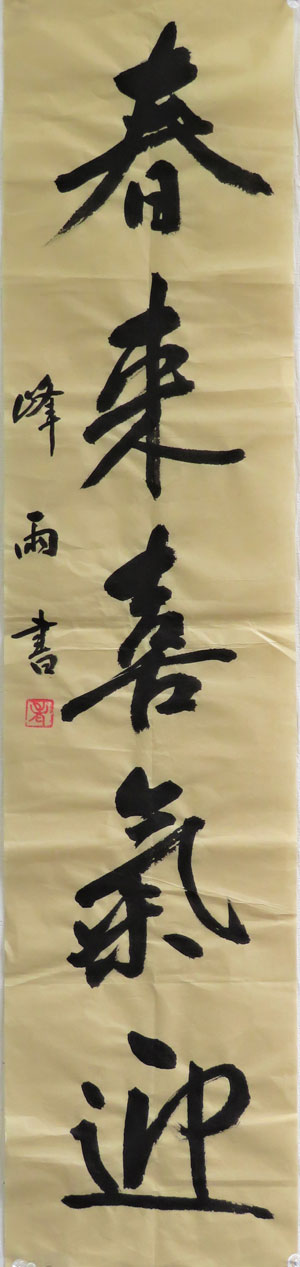 春来喜氣迎
峰雨書